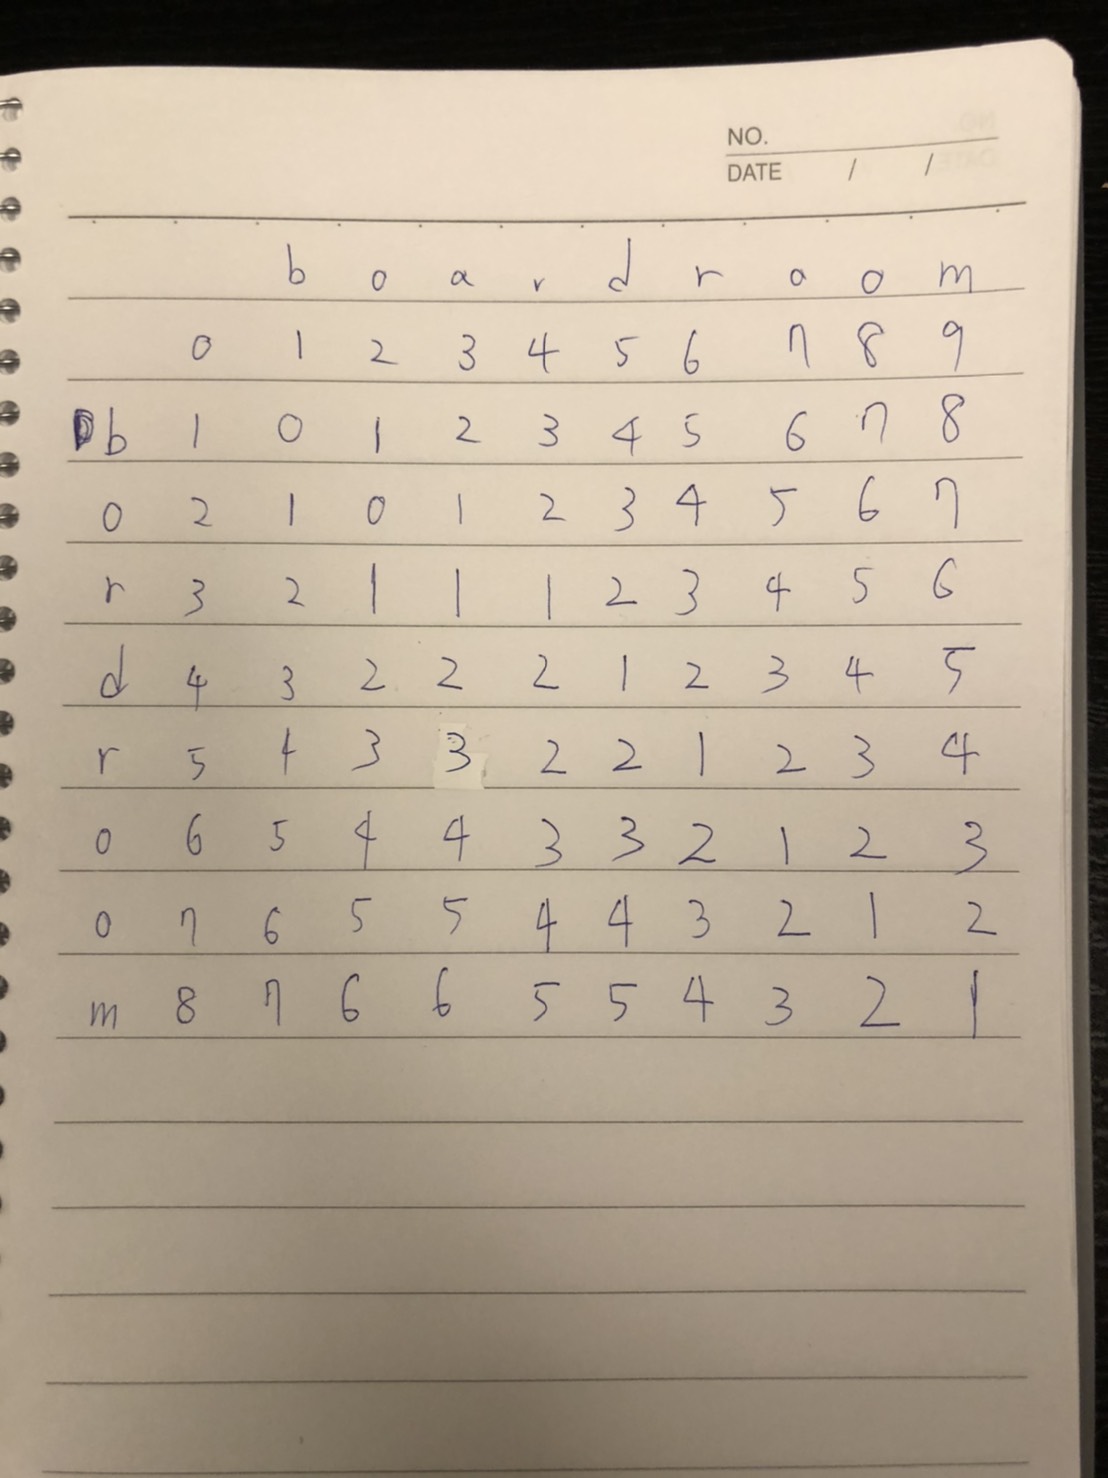 NO.
DATE / /
b o a r d r o o m
0 1 2 3 4 5 6 7 8 9
b 1 0 1 2 3 4 5 6 7 8
o 2 1 0 1 2 3 4 5 6 7
r 3 2 1 1 1 2 3 4 5 6
d 4 3 2 2 2 1 2 3 4 5
r 5 4 3 3 2 2 1 2 3 4
o 6 5 4 4 3 3 2 1 2 3
o 7 6 5 5 4 4 3 2 1 2
m 8 7 6 6 5 5 4 3 2 1